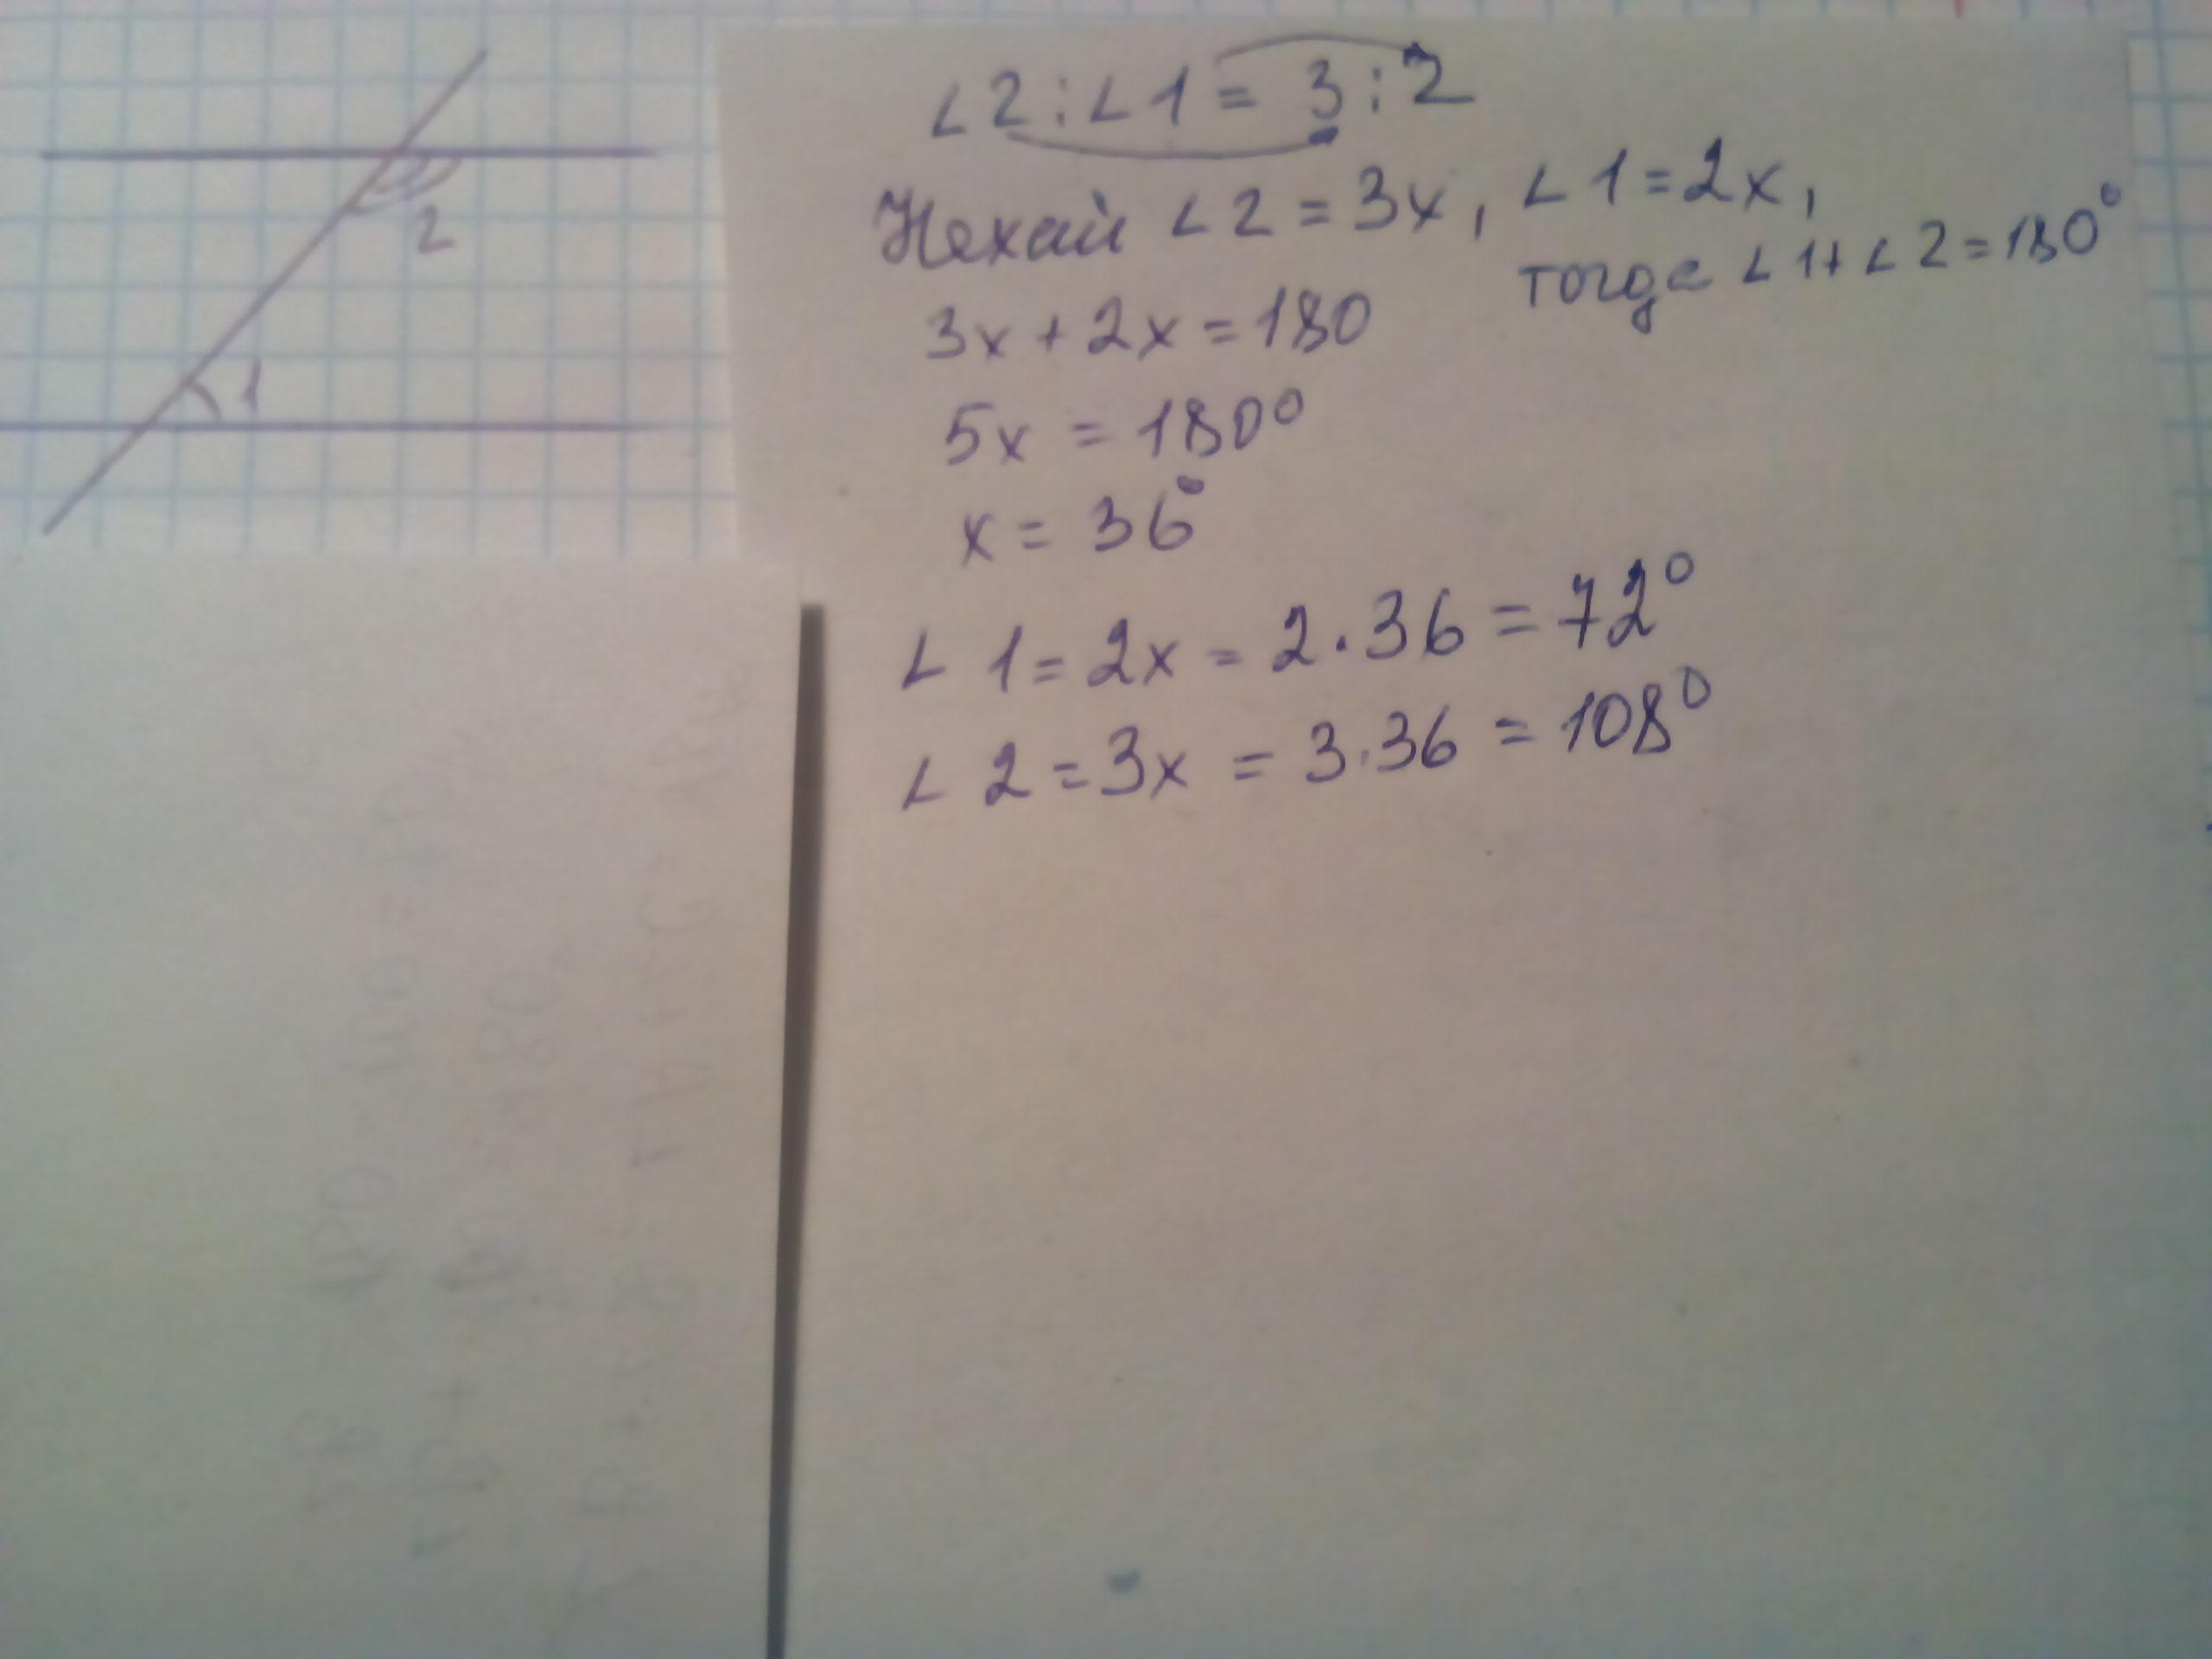 2
1
∠2:∠1=3:2
Нехай ∠2=3x, ∠1=2x,
тогда ∠1+∠2=180°
3x+2x=180
5x=180°
x=36°
∠1=2x=2·36=72°
∠2=3x=3·36=108°